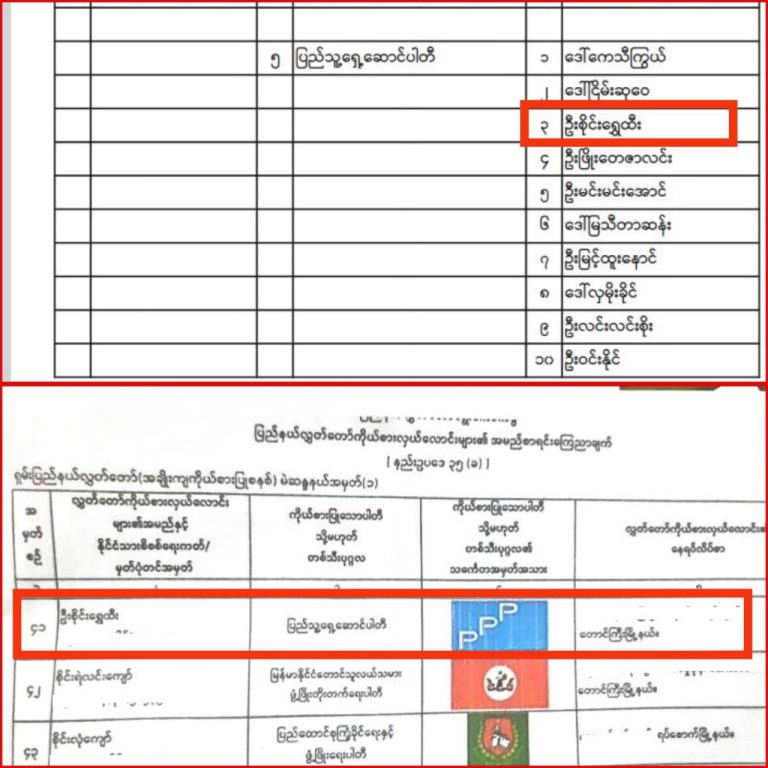 ၅ ပြည်သူ့ရှေ့ဆောင်ပါတီ ၁ ဒေါ်ကေသီကြွယ်
၂ ဒေါ်ငြိမ်းဆုဝေ
၃ ဦးစိုင်းရွှေထီး
၄ ဦးဖြိုးတေဇာလင်း
၅ ဦးမင်းမင်းအောင်
၆ ဒေါ်မြသီတာဆန်း
၇ ဦးမြင့်ထူးနောင်
၈ ဒေါ်လှမိုးခိုင်
၉ ဦးလင်းလင်းစိုး
၁၀ ဦးဝင်းနိုင်
ပြည်နယ်လွှတ်တော်ကိုယ်စားလှယ်လောင်းများ၏ အမည်စာရင်းကြေညာချက်
[ နည်းဥပဒေ ၃၅ (ခ) ]
ရှမ်းပြည်နယ်လွှတ်တော်(အချိုးကျကိုယ်စားပြုစနစ်) မဲဆန္ဒနယ်အမှတ်(၁)
အမှတ်စဉ်
လွှတ်တော်ကိုယ်စားလှယ်လောင်း
များ၏အမည်နှင့်
နိုင်ငံသားစိစစ်ရေးကတ်/
မှတ်ပုံတင်အမှတ်
ကိုယ်စားပြုသောပါတီ
သို့မဟုတ်
တစ်သီးပုဂ္ဂလ
ကိုယ်စားပြုသောပါတီ
သို့မဟုတ်
တစ်သီးပုဂ္ဂလ၏
သင်္ကေတအမှတ်အသား
လွှတ်တော်ကိုယ်စားလှယ်လောင်း၏
နေရပ်လိပ်စာ
၄၁ ဦးစိုင်းရွှေထီး ပြည်သူ့ရှေ့ဆောင်ပါတီ PPP တောင်ကြီးမြို့နယ်။
၄၂ စိုင်းရဲလင်းကျော် မြန်မာနိုင်ငံတောင်သူလယ်သမား
ဖွံ့ဖြိုးတိုးတက်ရေးပါတီ တောင်ကြီးမြို့နယ်။
၄၃ စိုင်းလုံကျော် ပြည်ထောင်စုကြံ့ခိုင်ရေးနှင့်
ဖွံ့ဖြိုးရေးပါတီ ရပ်စောက်မြို့နယ်။